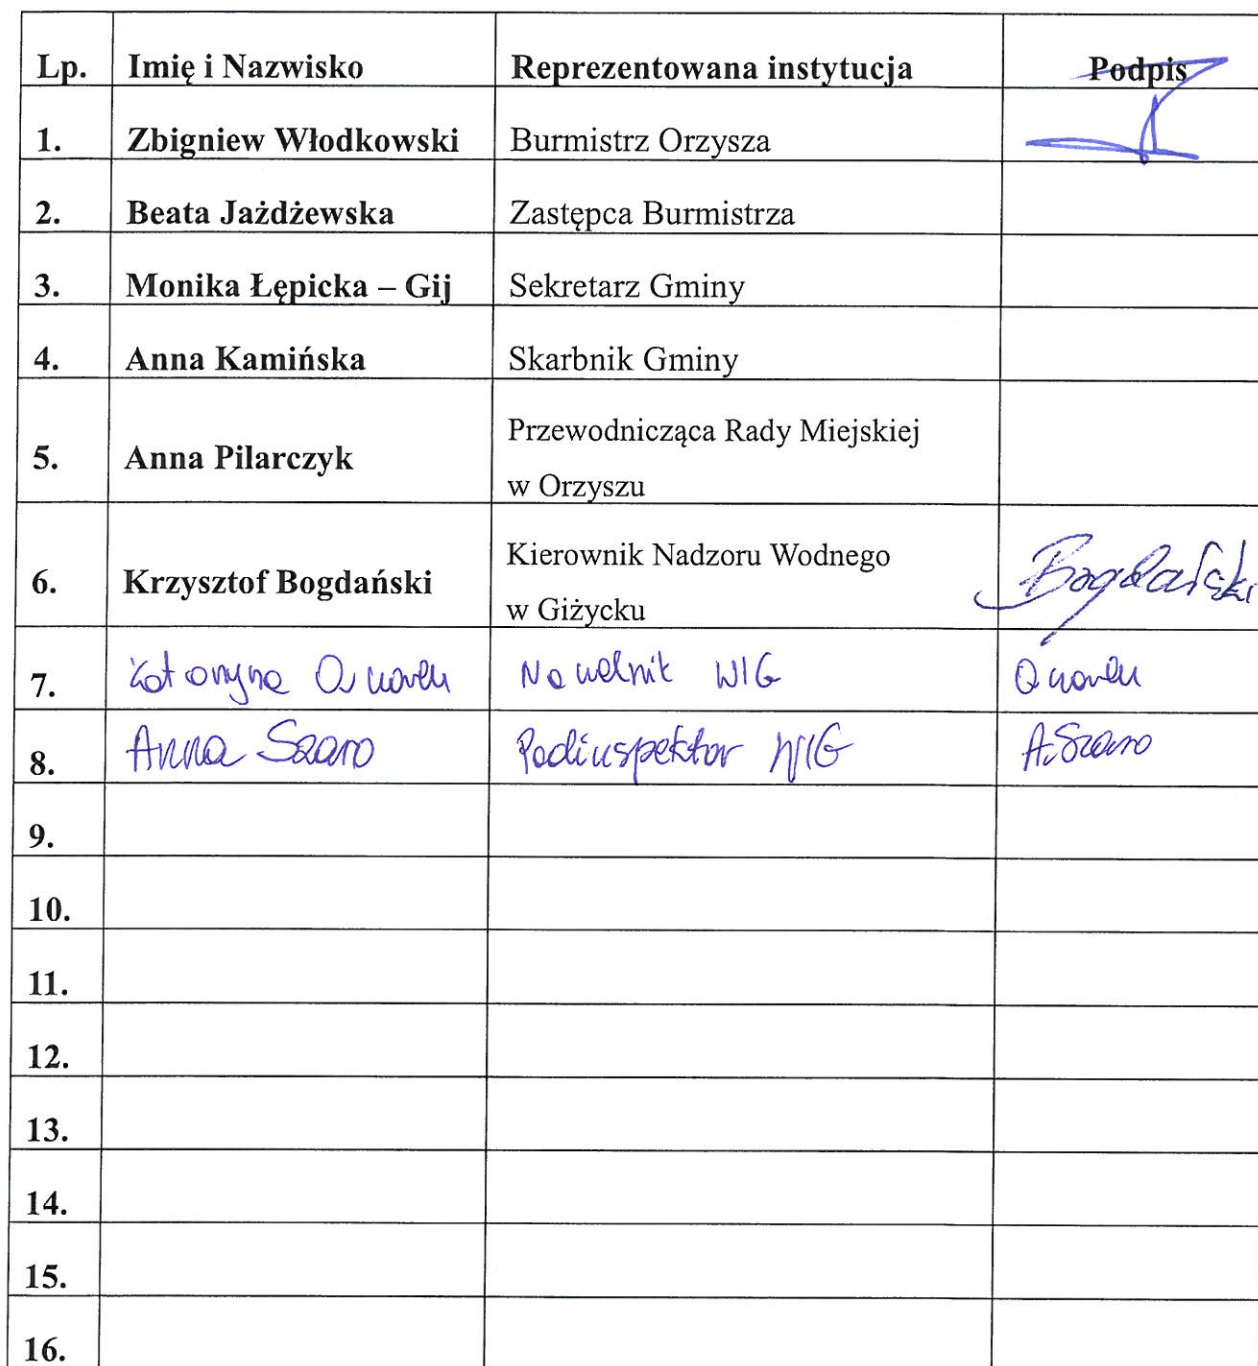 Lp. Imię i Nazwisko Reprezentowana instytucja Podpis
1. Zbigniew Włodkowski Burmistrz Orzysza
2. Beata Jażdżewska Zastępca Burmistrza
3. Monika Łępicka – Gij Sekretarz Gminy
4. Anna Kamińska Skarbnik Gminy
5. Anna Pilarczyk Przewodnicząca Rady Miejskiej
w Orzyszu
6. Krzysztof Bogdański Kierownik Nadzoru Wodnego Bogdański
w Giżycku
7. Katarzyna Naczelnik WIG
8. Anna Szaro Podinspektor WIG A. Szaro
9.
10.
11.
12.
13.
14.
15.
16.